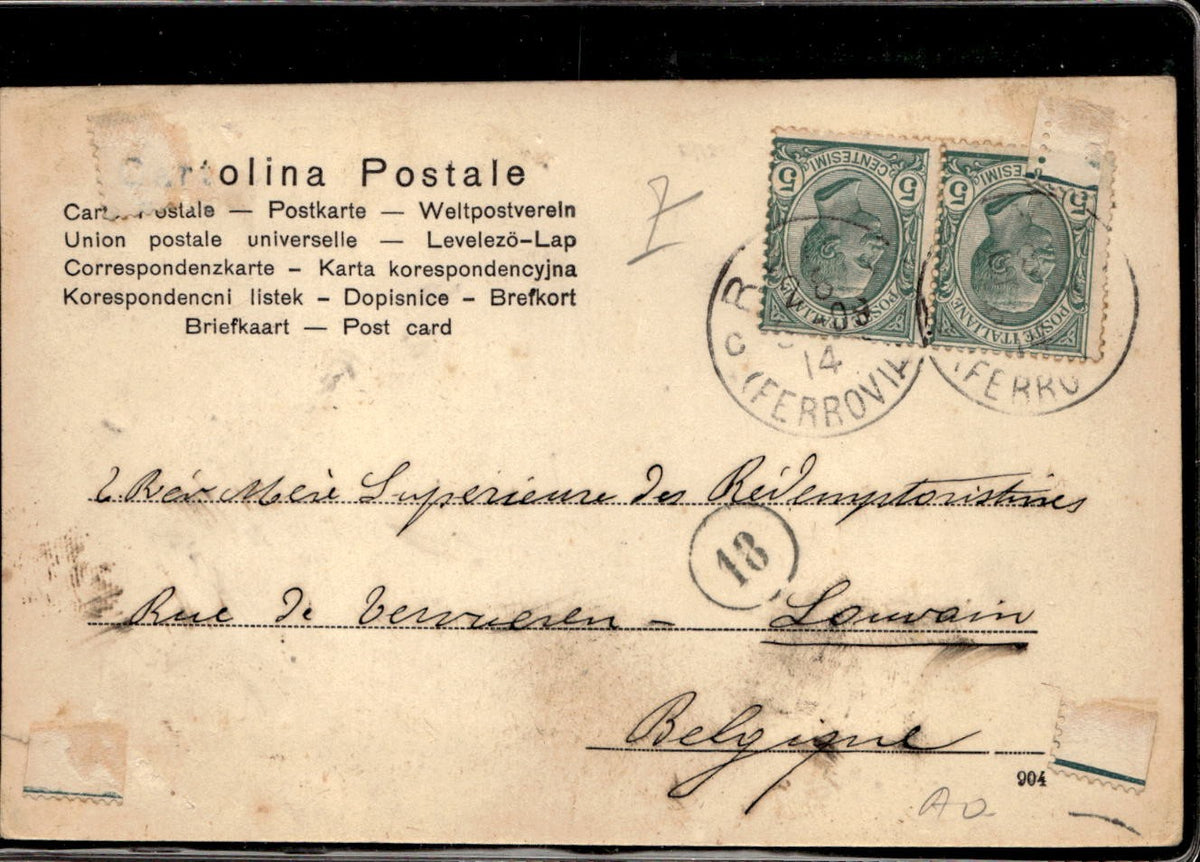 Cartolina Postale
Carte Postale — Postkarte — Weltpostverein
Union postale universelle — Levelező-Lap
Correspondenzkarte – Karta korespondencyjna
Korespondencni listek – Dopisnice – Brefkort
Briefkaart — Post card
5 CENTESIMI 5
POSTE ITALIANE
5 ESIMI 5
POSTE ITALIANE
14
(FERROVIA
(FERRO
Rév Mère Supérieure des Rédemptoristines
18
Rue de Tervueren – Louvain
Belgique
904